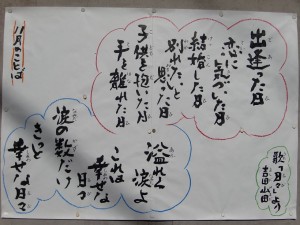 出逢った日
恋に気づいた日
結婚した日
別れたいと思った日
子供を抱いた日
手を離れた日
溢れる涙よ
これは幸せな日々
涙の数だけ
きっと
幸せな日々
歌「日々」より
吉田山田
11月のことば